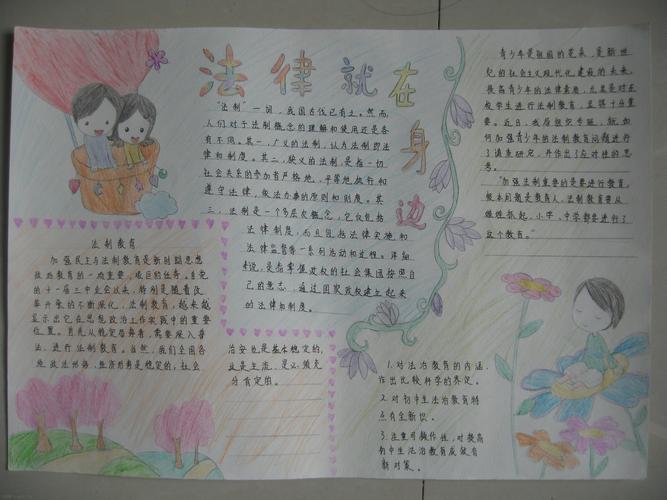 法律就在身边
"法制"一词，我国古代已有之。然而，
人们对于法制概念的理解和使用还是各
有不同。其一，广义的法制，认为法制即法
律和制度。其二，狭义的法制，是指一切
社会关系的参加者严格地、平等地执行和
遵守法律，依法办事的原则和制度。其
三，法制是一个多层次概念，它不仅包括
法律制度，而且包括法律实施和
法律监督等一系列活动和过程。详细
来说，是指掌握政权的社会集团按照自
己的意志，通过国家政权建立起来
的法律和制度。
法制教育
加强民主与法制教育是新时期思想
政治教育的一项重要、艰巨的任务。自党
的十一届三中全会以来，特别是随着改
革开放的不断深化，法制教育，越来越
显示出它在思想政治工作实践中的重要
位置。首先从稳定着眼，需要深入普
法，进行法制教育。当然，我们全国各
地政治形势、经济形势是稳定的，社会
治安也是基本稳定的，
这是主流，是必须充
分肯定的。
青少年是祖国的花朵，是新世
纪的社会主义现代化建设的未来。
提高青少年的法律素质，尤其是对在
校学生进行法制教育，显得十分重
要。近日，我局组织专班，就如
何加强青少年的法制教育问题进行
了调查研究，并作出了应对性的思
考。
"加强法制重要的是要进行教育，
根本问题是教育人，法制教育要从
娃娃抓起，小学、中学都要进行了
这个教育。"
1.对法治教育的内涵
作出比较科学的界定。
2.对初中生法治教育特
点有全新识。
3.注重可操作性，对提高
初中生法治教育成效有
新对策。